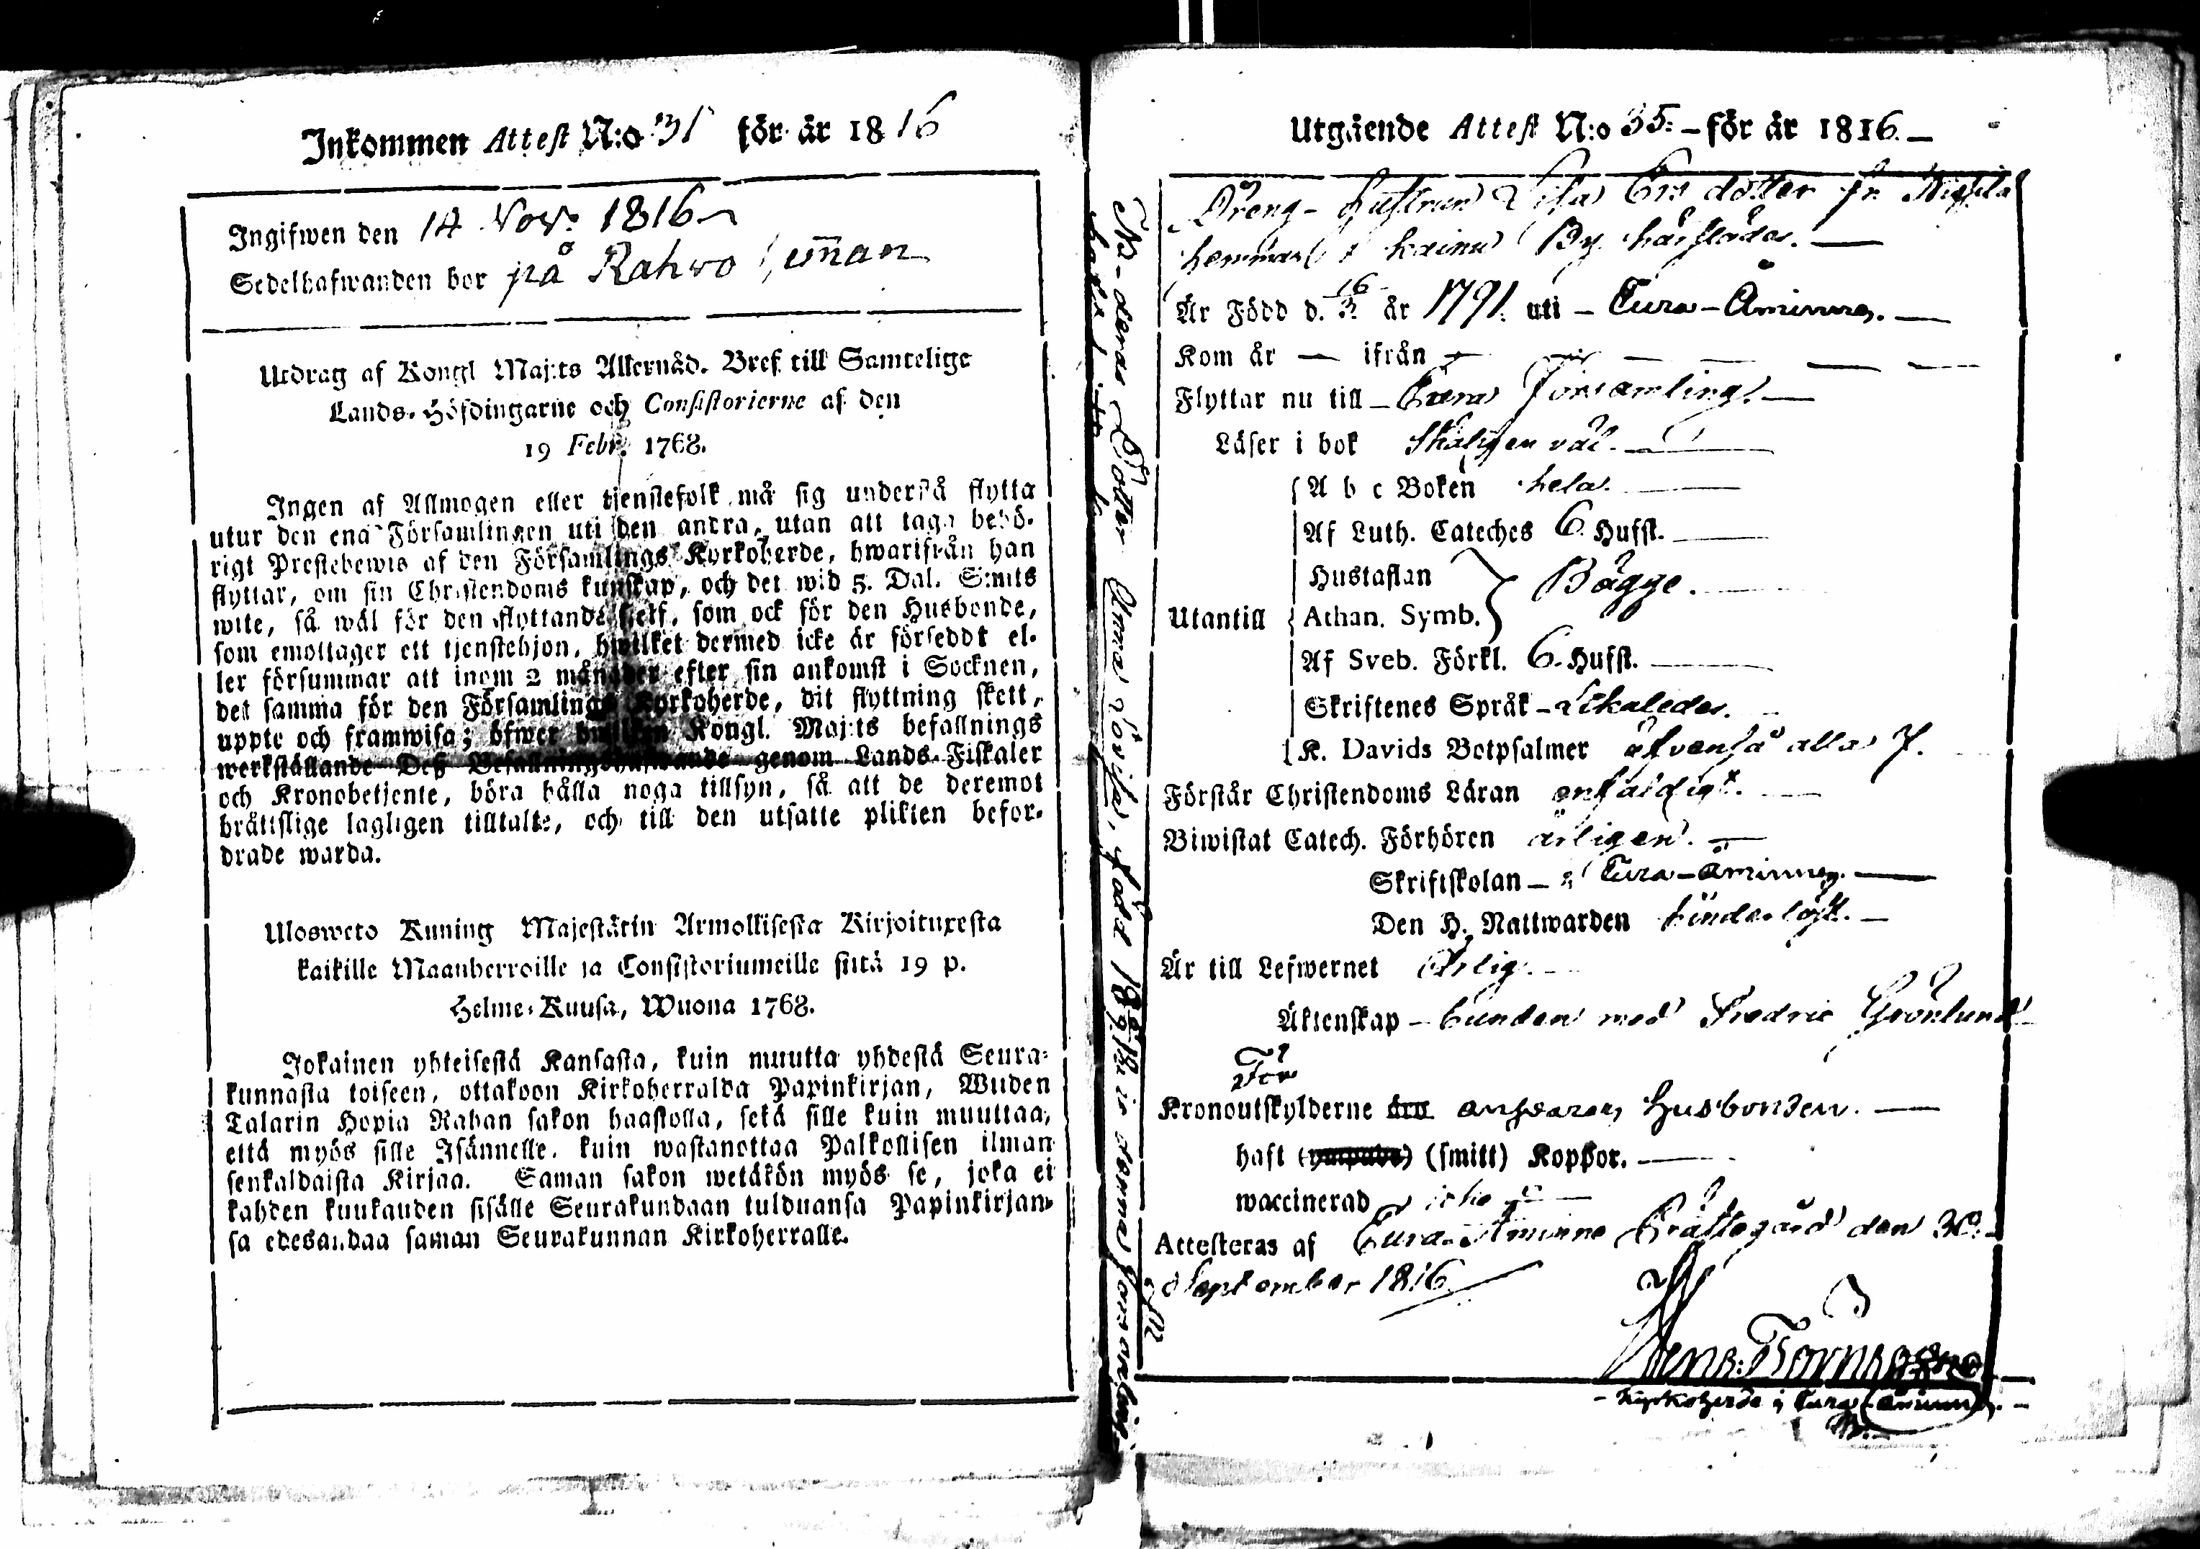 Inkommen Attest N:o 31 för år 1816
Ingifwen den 14 Nov. 1816
Sedelhafwanden bor på Rahvo
Utdrag af Kongl Maj:ts Allernåd. Bref till Samtelige
Lands-Höfdingarne och Consistorierne af den
19 Febr. 1768.
Ingen af Allmogen eller tjenstefolk må sig understå flytta
utur den ena Församlingen uti den andra, utan att taga behö-
rigt Prestebewis af den Församlings Kyrkoherde, hwarifrån han
flyttar, om sin Christendoms kunskap, och det wid 5. Dal. S:mts
wite, så wäl för den flyttande sjelf, som ock för den Husbonde,
som emottager ett tjenstehjon, hwilket dermed icke är förseddt el-
ler försummar att inom 2 månader efter sin ankomst i Socknen,
det samma för den Församlings Kyrkoherde, dit flyttning skett,
uppte och framwisa; öfwer hwilken Kongl. Maj:ts befallnings
werkställande Deß Befallningshafwande genom Lands-Fiskaler
och Kronobetjente, böra hålla noga tillsyn, så att de deremot
bråttslige lagligen tilltalte, och till den utsatte plikten befor-
drade warda.
Ulosweto Kuning Majestätin Armollisesta Kirjoituxesta
kaikille Maanherroille ja Consistoriumeille siitä 19 p.
Helme-Kuusa, Wuona 1768.
Jokainen yhteisestä Kansasta, kuin muutta yhdestä Seura-
kunnasta toiseen, ottakoon Kirkoherralda Papinkirjan, Wiiden
Talarin Hopia Rahan sakon haastolla, sekä sille kuin muuttaa,
että myös sille Isännelle, kuin wastanottaa Palkollisen ilman
senkaldaista Kirjaa. Saman sakon wetäkön myös se, joka ei
kahden kuukauden sisälle Seurakundaan tulduansa Papinkirjan-
sa edesandaa saman Seurakunnan Kirkoherralle.
deras Dotter Anna Lovisa, född 18 i denna Församling
Utgående Attest N:o 35. för år 1816.
Dreng-hustrun Lisa Ers dotter fr.
hemman i Kainu By härstädes.
Är Född d. 16/3 år 1791. uti Eura-Åminne.
Kom år — ifrån —
Flyttar nu till Eura Församling.
Läser i bok skäligen väl.
A b c Boken hela.
Af Luth. Cateches 6 Hufst.
Hustaflan
Athan. Symb. } Bägge.
Utantill
Af Sveb. Förkl. 6. Hufst.
Skriftenes Språk likaledes.
K. Davids Botpsalmer äfvenså alla 7.
Förstår Christendoms Läran enfaldigt.
Biwistat Catech. Förhören årligen.
Skriftskolan i Eura-Åminne.
Den H. Nattwarden
Är till Lefwernet Ärlig.
Äktenskap bunden med Fredric Grönlund
För
Kronoutskylderne ansvarar Husbonden.
haft (smitt) Koppor.
waccinerad icke
Attesteras af Eura-Åminne Prästegård den 30.
September 1816.
Kyrkoherde i Eura Åminne.